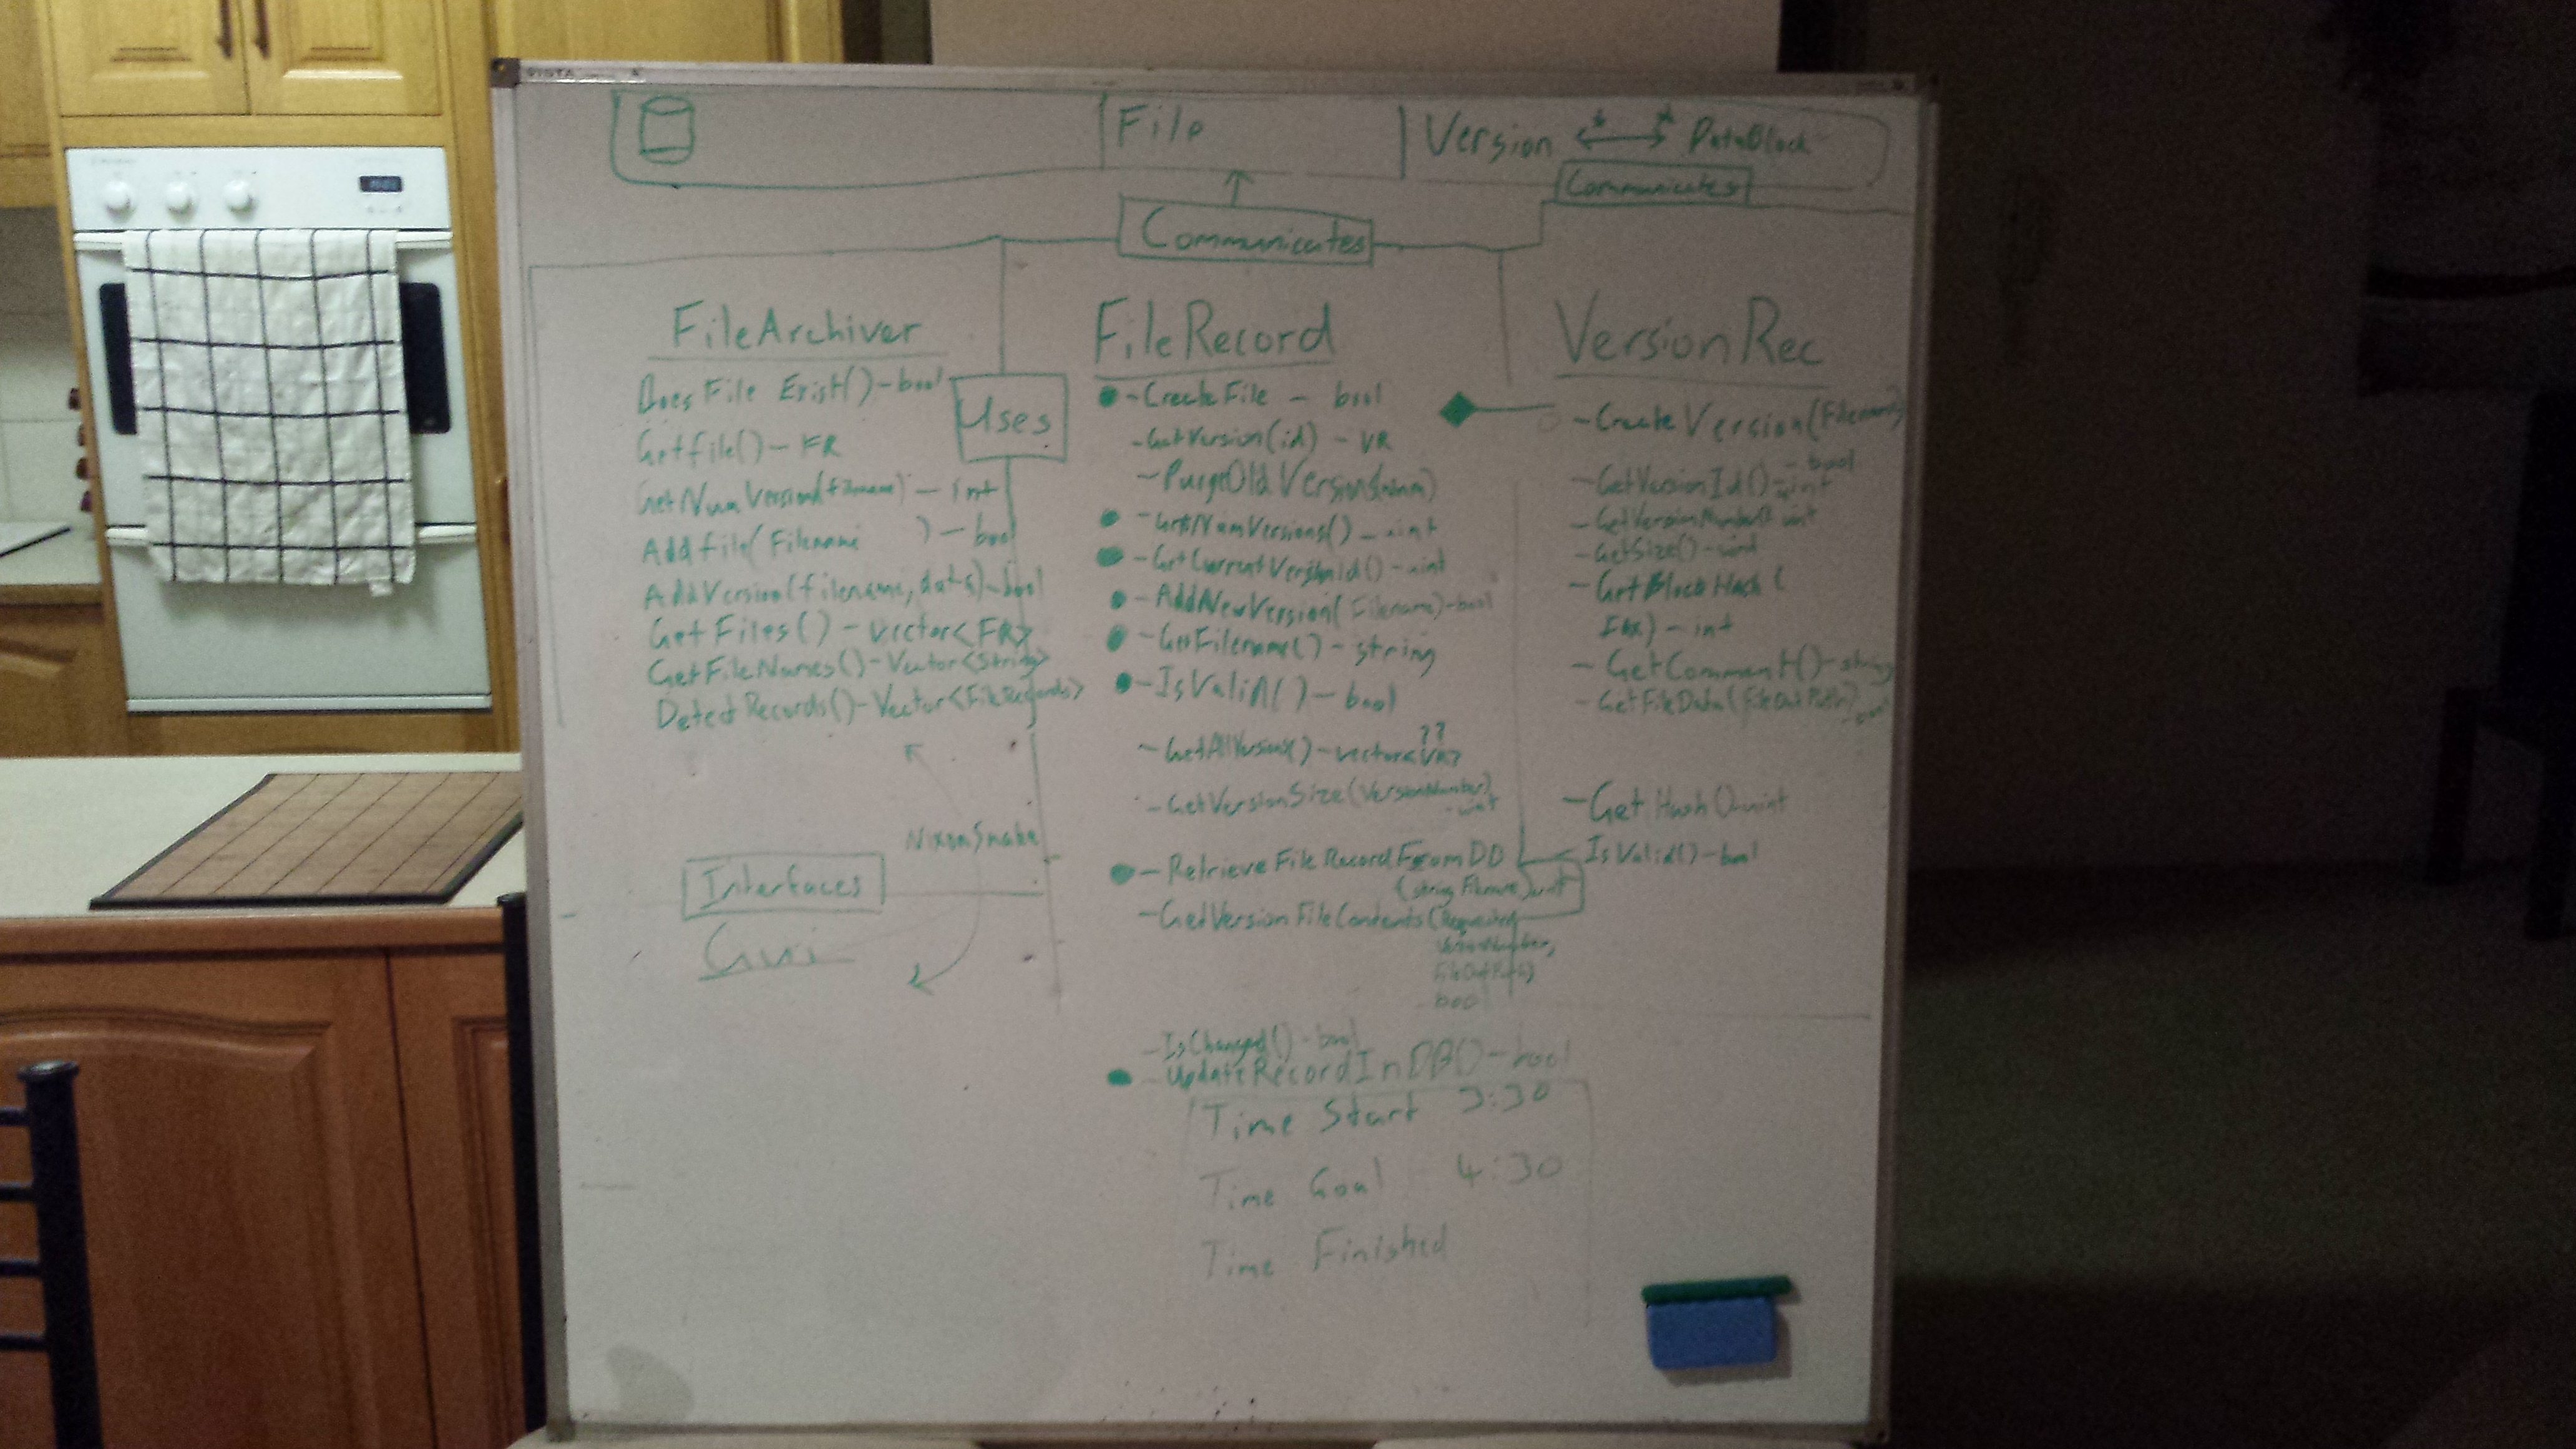 VISTA
File
Version * * DataBlock
Communicates
Communicates
FileArchiver
Does File Exist() - bool
Getfile() - FR
GetNumVersion(filename) - int
Addfile(Filename ) - bool
AddVersion(filename, data) - bool
GetFiles() - vector<FR>
GetFileNames() - Vector<String>
DetectRecords() - Vector<FileRecords>
Uses
NixonSnake
Interfaces
Gui
FileRecord
- CreateFile - bool
- GetVersion(id) - VR
- PurgeOldVersions(num)
- GetNumVersions() - uint
- GetCurrentVersionId() - uint
- AddNewVersion(Filename) - bool
- GetFilename() - string
- IsValid() - bool
??
- GetAllVersions() - vector<VR>
- GetVersionSize(VersionNumber)
- uint
- RetrieveFileRecordFromDB
(string Filename) uint
- GetVersionFileContents(Requested
VersionNumber,
FileOutPath)
bool
- IsChanged() - bool
- UpdateRecordInDB() - bool
Time Start 3:30
Time Goal 4:30
Time Finished
VersionRec
- CreateVersion(Filename)
- bool
- GetVersionId() - int
- GetVersionNumber() uint
- GetSize() - uint
- GetBlockHash(
Idx) - int
- GetComment() - string
- GetFileData(FileOutPath)
- GetHash() uint
- IsValid() - bool